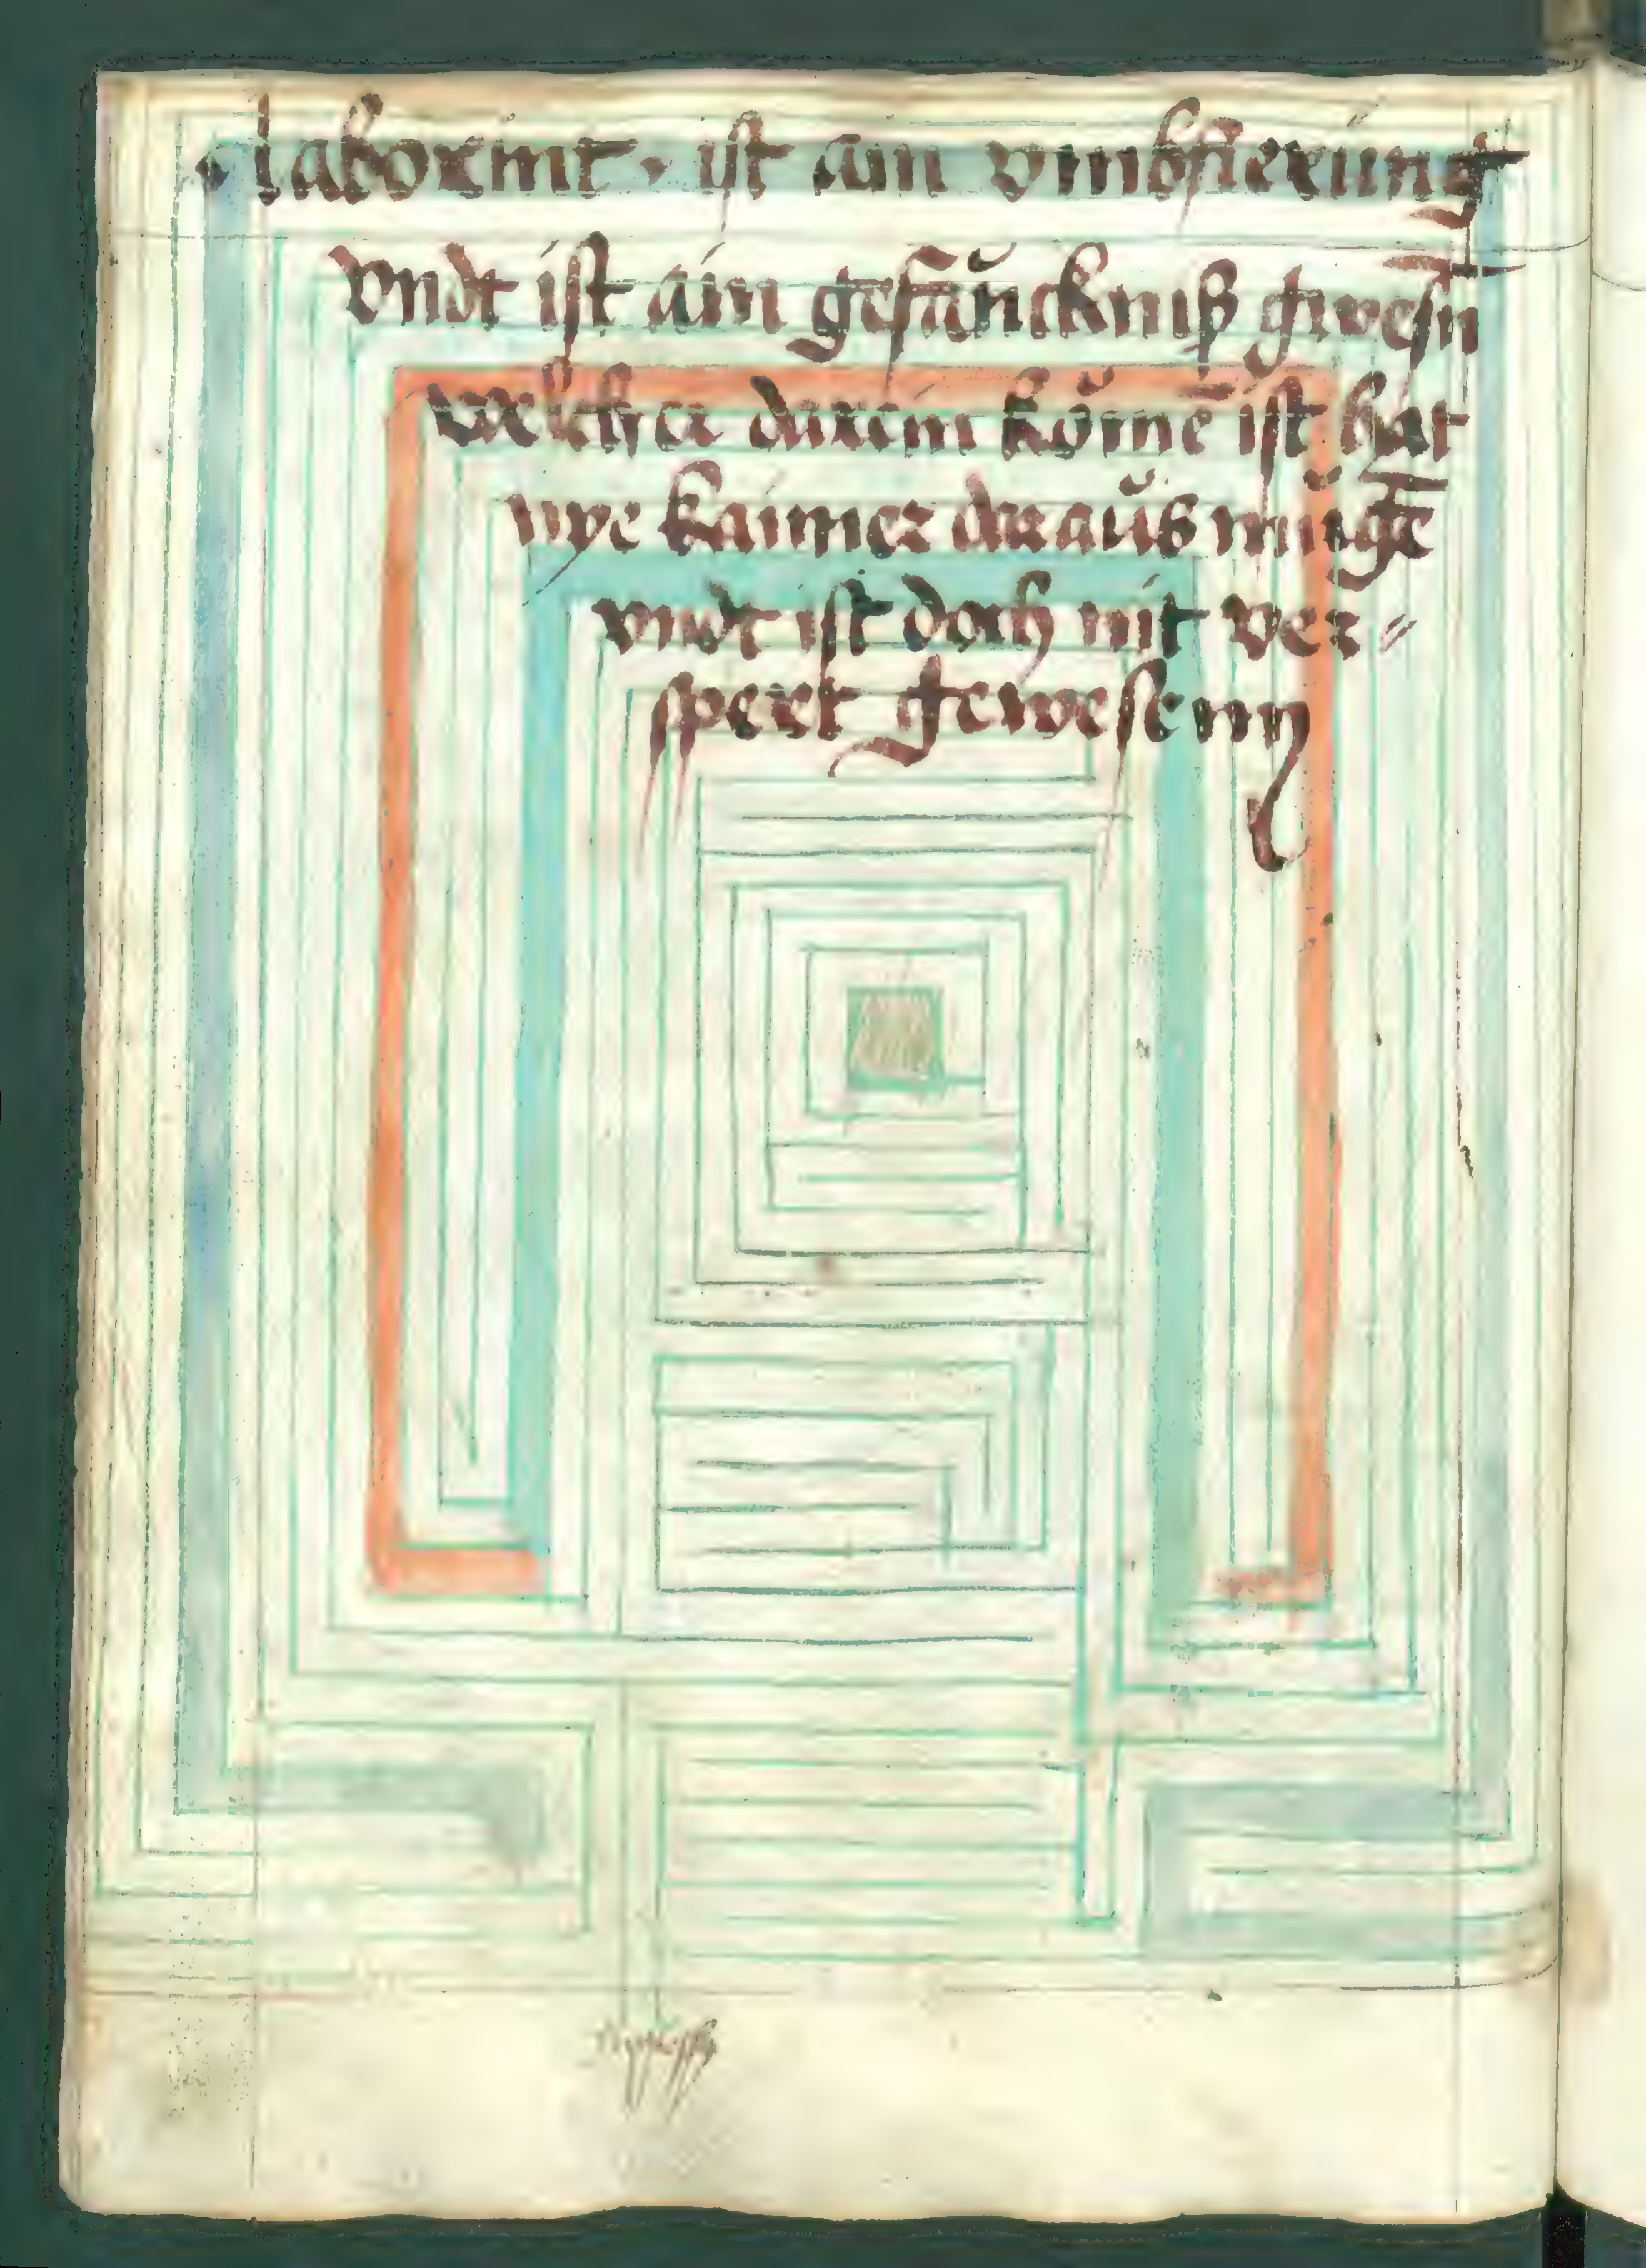 · laborint · ist ain vmbfierung
vndt ist ain gefäncknüß gwesn
welcher darein kömē ist hat
nye kainer daraüs mügē
vndt ist doch nit ver⸗
spert gewesenn